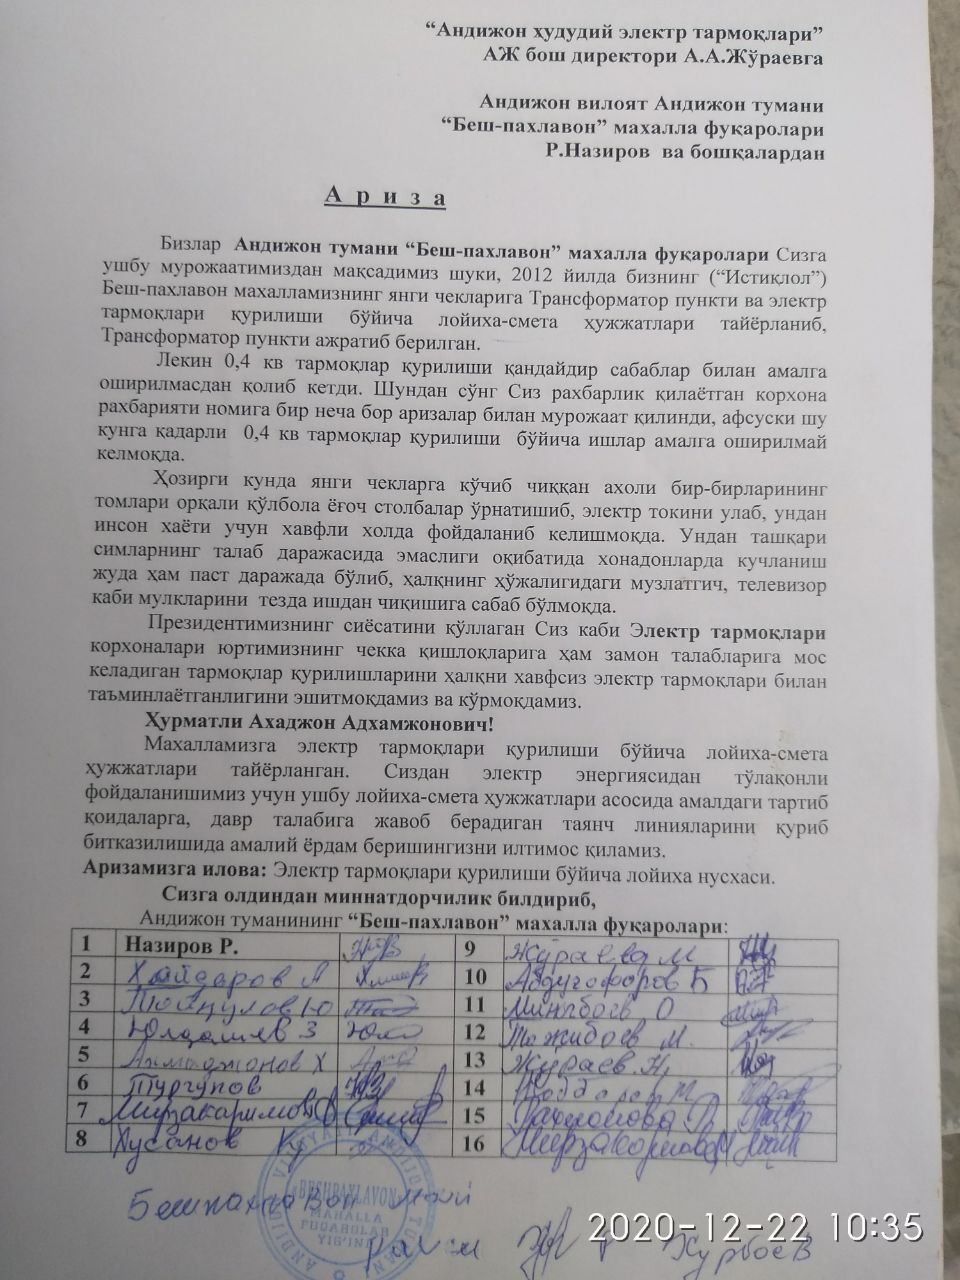 “Андижон ҳудудий электр тармоқлари”
АЖ бош директори А.А.Жўраевга
Андижон вилоят Андижон тумани
“Беш-пахлавон” махалла фуқаролари
Р.Назиров ва бошқалардан
А р и з а
Бизлар Андижон тумани “Беш-пахлавон” махалла фуқаролари Сизга
ушбу мурожаатимиздан мақсадимиз шуки, 2012 йилда бизнинг (“Истиқлол”)
Беш-пахлавон махалламизнинг янги чекларига Трансформатор пункти ва электр
тармоқлари қурилиши бўйича лойиха-смета ҳужжатлари тайёрланиб,
Трансформатор пункти ажратиб берилган.
Лекин 0,4 кв тармоқлар қурилиши қандайдир сабаблар билан амалга
оширилмасдан қолиб кетди. Шундан сўнг Сиз рахбарлик қилаётган корхона
рахбарияти номига бир неча бор аризалар билан мурожаат қилинди, афсуски шу
кунга қадарли 0,4 кв тармоқлар қурилиши бўйича ишлар амалга оширилмай
келмоқда.
Ҳозирги кунда янги чекларга кўчиб чиққан ахоли бир-бирларининг
томлари орқали қўлбола ёғоч столбалар ўрнатишиб, электр токини улаб, ундан
инсон хаёти учун хавфли холда фойдаланиб келишмоқда. Ундан ташқари
симларнинг талаб даражасида эмаслиги оқибатида хонадонларда кучланиш
жуда ҳам паст даражада бўлиб, ҳалқнинг ҳўжалигидаги музлатгич, телевизор
каби мулкларини тезда ишдан чиқишига сабаб бўлмоқда.
Президентимизнинг сиёсатини қўллаган Сиз каби Электр тармоқлари
корхоналари юртимизнинг чекка қишлоқларига ҳам замон талабларига мос
келадиган тармоқлар қурилишларини ҳалқни хавфсиз электр тармоқлари билан
таъминлаётганлигини эшитмоқдамиз ва кўрмоқдамиз.
Ҳурматли Ахаджон Адхамжонович!
Махалламизга электр тармоқлари қурилиши бўйича лойиха-смета
ҳужжатлари тайёрланган. Сиздан электр энергиясидан тўлақонли
фойдаланишимиз учун ушбу лойиха-смета ҳужжатлари асосида амалдаги тартиб
қоидаларга, давр талабига жавоб берадиган таянч линияларини қуриб
битказилишида амалий ёрдам беришингизни илтимос қиламиз.
Аризамизга илова: Электр тармоқлари қурилиши бўйича лойиха нусхаси.
Сизга олдиндан миннатдорчилик билдириб,
Андижон туманининг “Беш-пахлавон” махалла фуқаролари:
1 Назиров Р. 9 Жўраева М
2 Хайдаров А 10 Абдуғофоров Б
3 Ю 11 О
4 Юлдашев З 12 Тожибоев М.
5 Ахмаджонов Х 13 Жўраев Н,
6 Турғунов 14
7 Мирзакаримов 15
8 Хусанов 16
"BESHPAXLAVON"
MAHALLA
FUQAROLAR
YIG'INI
Қурбоев
2020-12-22 10:35